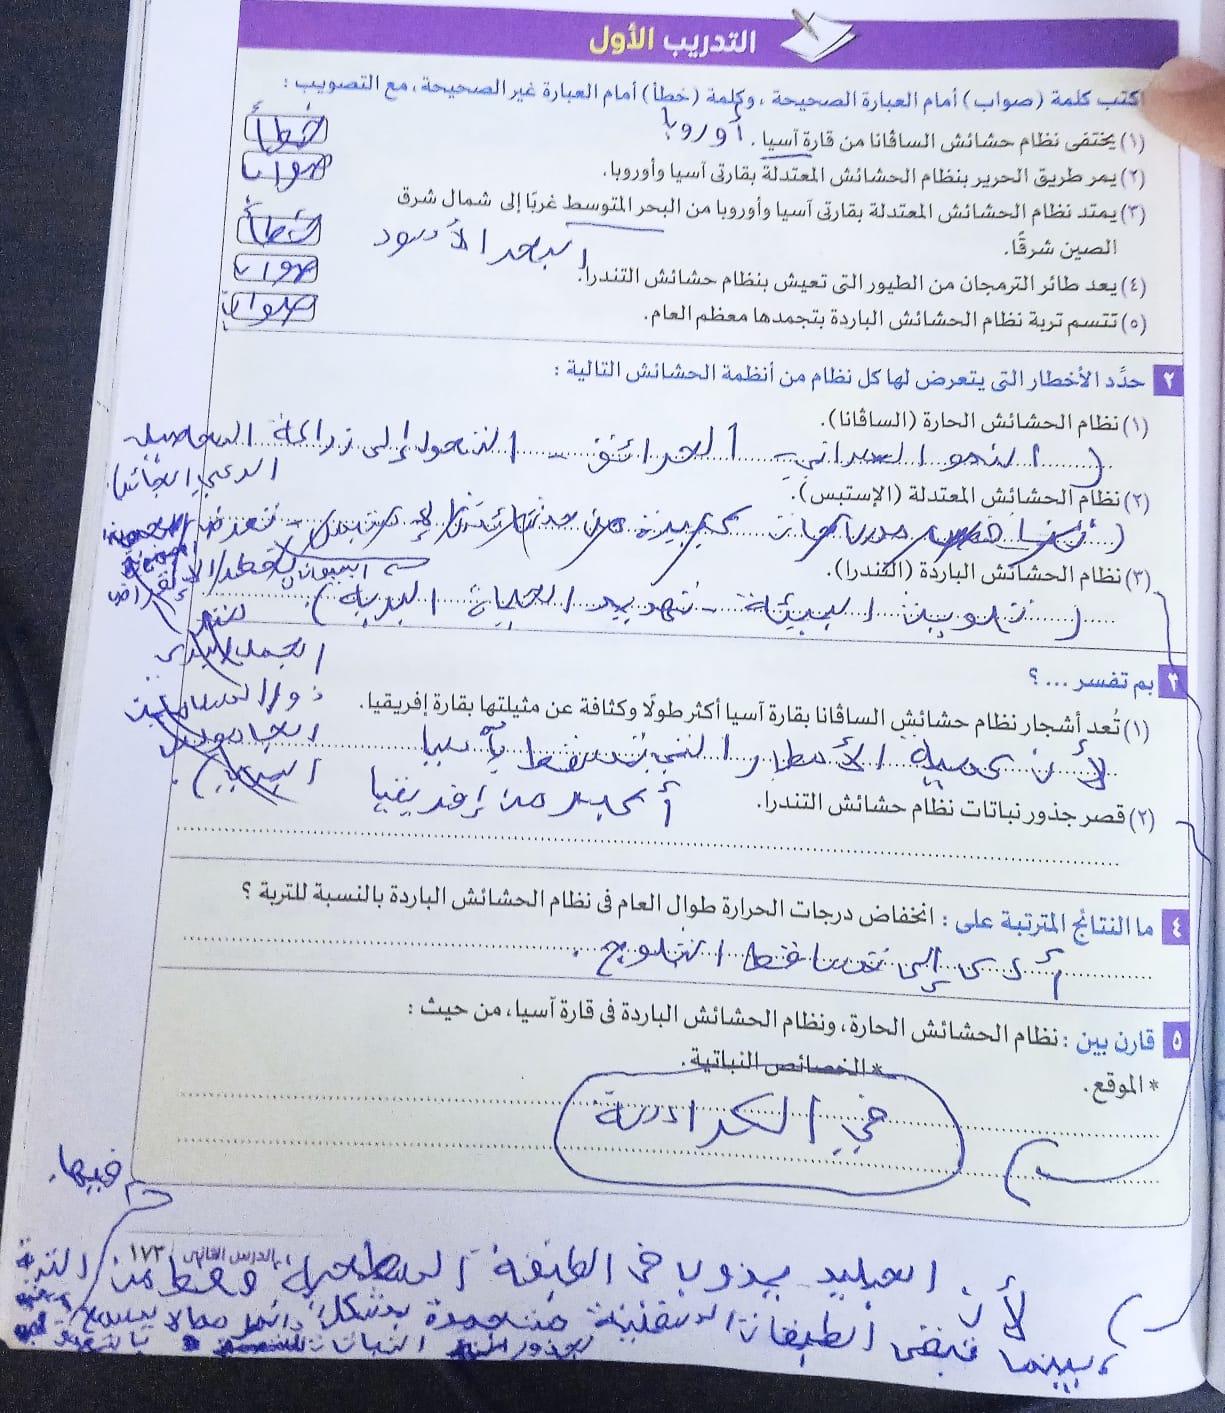 التدريب الأول
اكتب كلمة (صواب) أمام العبارة الصحيحة ، وكلمة (خطأ) أمام العبارة غير الصحيحة ، مع التصويب :
(١) يختفى نظام حشائش الساڤانا من قارة آسيا . أوروبا خطأ
(٢) يمر طريق الحرير بنظام الحشائش المعتدلة بقارتى آسيا وأوروبا. صواب
(٣) يمتد نظام الحشائش المعتدلة بقارتى آسيا وأوروبا من البحر المتوسط غربًا إلى شمال شرق
الصين شرقًا. البحر الأسود خطأ
(٤) يعد طائر الترمجان من الطيور التى تعيش بنظام حشائش التندرا. صواب
(٥) تتسم تربة نظام الحشائش الباردة بتجمدها معظم العام. صواب
٢ حدِّد الأخطار التى يتعرض لها كل نظام من أنظمة الحشائش التالية :
(١) نظام الحشائش الحارة (الساڤانا).
(النمو العمراني - الحرائق - التحول إلى زراعة المحاصيل
الرعي الجائر)
(٢) نظام الحشائش المعتدلة (الإستبس).
(٣) نظام الحشائش الباردة (التندرا).
(تلويث البيئة - تهديد الحياة البرية).
٣ بم تفسر ... ؟
(١) تُعد أشجار نظام حشائش الساڤانا بقارة آسيا أكثر طولًا وكثافة عن مثيلتها بقارة إفريقيا.
لأن كمية الأمطار التي تسقط بآسيا
أكبر من إفريقيا
(٢) قصر جذور نباتات نظام حشائش التندرا.
٤ ما النتائج المترتبة على : انخفاض درجات الحرارة طوال العام فى نظام الحشائش الباردة بالنسبة للتربة ؟
أدى إلى تساقط الثلوج .
٥ قارن بين : نظام الحشائش الحارة ، ونظام الحشائش الباردة فى قارة آسيا، من حيث :
* الموقع. * الخصائص النباتية.
في الكراسة
فيها.
الدرس الثانى ١٧٣
لأن الجليد يذوب في الطبقة السطحية فقط من التربة
بينما تبقى الطبقات السفلية متجمدة بشكل دائم مما لا يسمح
لجذور النباتات بالتعمق